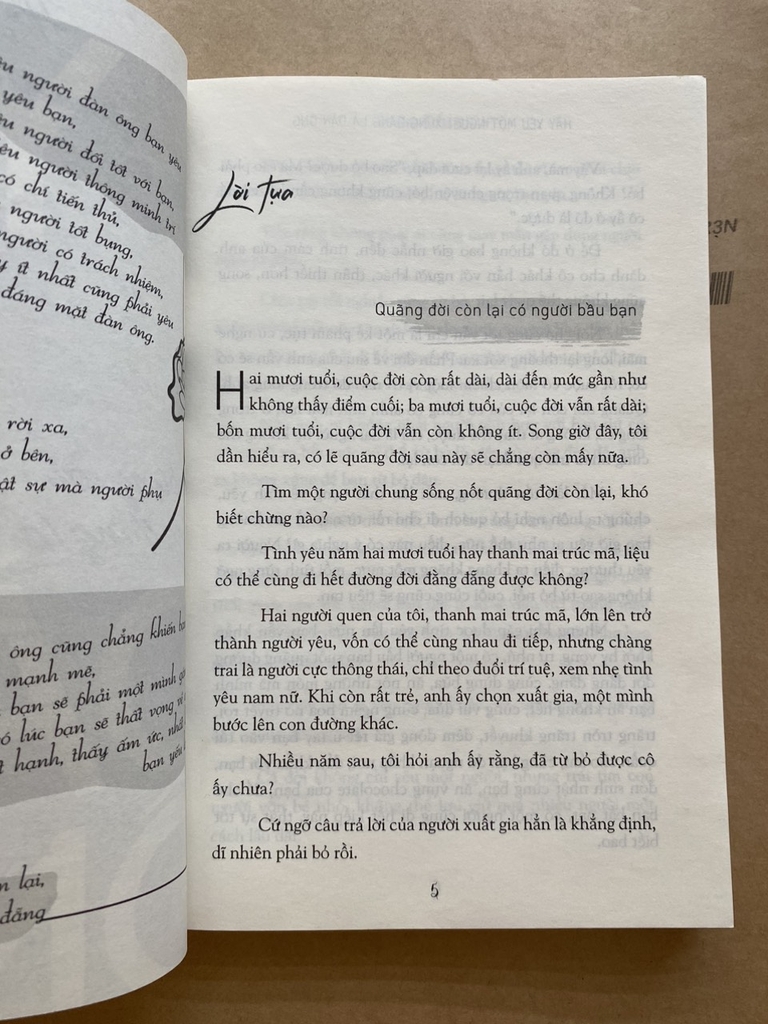 người đàn ông bạn yêu
yêu bạn,
người đối tốt với bạn,
người thông minh trí
có chí tiến thủ,
người tốt bụng,
người có trách nhiệm,
ít nhất cũng phải yêu
đáng mặt đàn ông.
rời xa,
ở bên,
sự mà người phụ
ông cũng chẳng khiến
mạnh mẽ,
bạn sẽ phải một mình
lúc bạn sẽ thất vọng
hạnh, thấy ấm ức,
bạn yêu
lại,
đẵng
Lời tựa
Quãng đời còn lại có người bầu bạn
Hai mươi tuổi, cuộc đời còn rất dài, dài đến mức gần như
không thấy điểm cuối; ba mươi tuổi, cuộc đời vẫn rất dài;
bốn mươi tuổi, cuộc đời vẫn còn không ít. Song giờ đây, tôi
dần hiểu ra, có lẽ quãng đời sau này sẽ chẳng còn mấy nữa.
Tìm một người chung sống nốt quãng đời còn lại, khó
biết chừng nào?
Tình yêu năm hai mươi tuổi hay thanh mai trúc mã, liệu
có thể cùng đi hết đường đời đằng đẵng được không?
Hai người quen của tôi, thanh mai trúc mã, lớn lên trở
thành người yêu, vốn có thể cùng nhau đi tiếp, nhưng chàng
trai là người cực thông thái, chỉ theo đuổi trí tuệ, xem nhẹ tình
yêu nam nữ. Khi còn rất trẻ, anh ấy chọn xuất gia, một mình
bước lên con đường khác.
Nhiều năm sau, tôi hỏi anh ấy rằng, đã từ bỏ được cô
ấy chưa?
Cứ ngỡ câu trả lời của người xuất gia hẳn là khẳng định,
dĩ nhiên phải bỏ rồi.
5